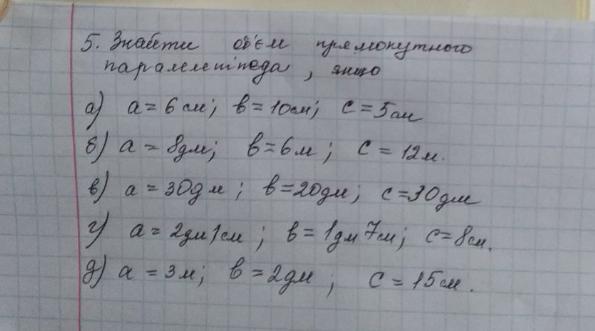 5. Знайти об'єм прямокутного
паралелепіпеда, якщо
а) a = 6 см; в = 10см; с = 5см
б) a = 8дм; в = 6 м; с = 12м.
в) a = 30дм; в = 20дм; с = 30дм
г) a = 2дм 1см; в = 1дм 7см; с = 8см.
д) a = 3 м; в = 2дм; с = 15см.